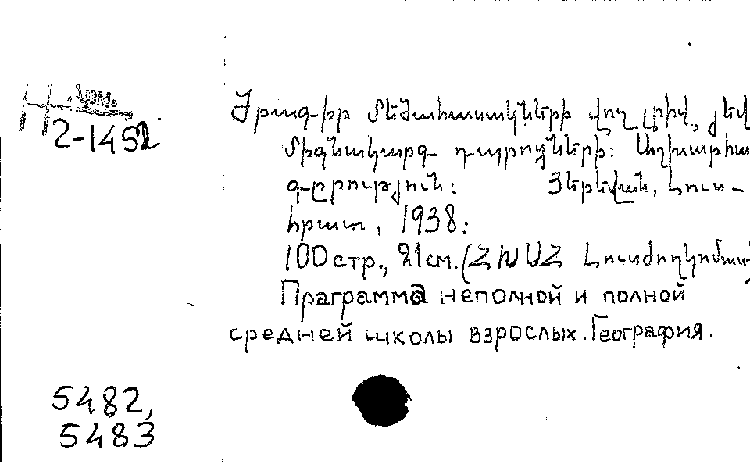 2-1452
Ծրագիր մեծահասակների վոչ լրիվ, յեվ
միջնակարգ դպրոցների: Աշխարհա
գրություն: Յերեվան, Լուս-
հրատ, 1938:
100 стр., 21 см. (ՀԽՍՀ Լուսժողկոմատ
Праграмма неполной и полной
средней школы взрослых. География.
5482,
5483